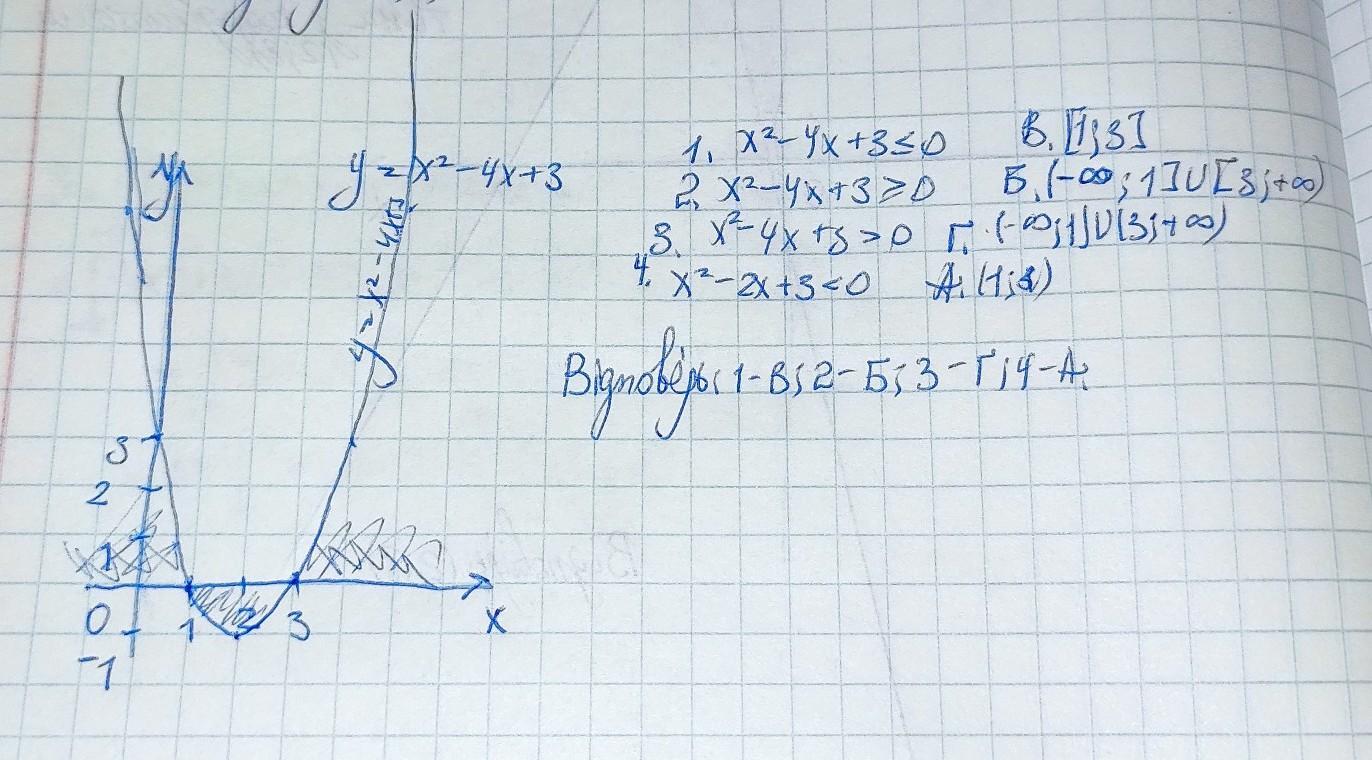 y
y = x²-4x+3
y = x²-4x+3
3
2
1
0 1 2 3 x
-1
1. x²-4x+3≤0 В. [1;3]
2. x²-4x+3≥0 Б. (-∞;1]U[3;+∞)
3. x²-4x+3>0 Г. (-∞;1)U(3;+∞)
4. x²-2x+3<0 А. (1;3)
Відповідь: 1-В; 2-Б; 3-Г; 4-А;